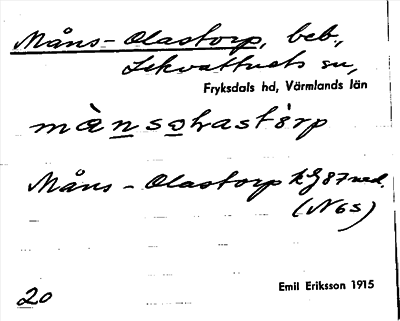 Måns-Olastorp, beb.,
Lekvattnets sn,
Fryksdals hd, Värmlands län
Måns-Olastorp
(N6S)
20
Emil Eriksson 1915